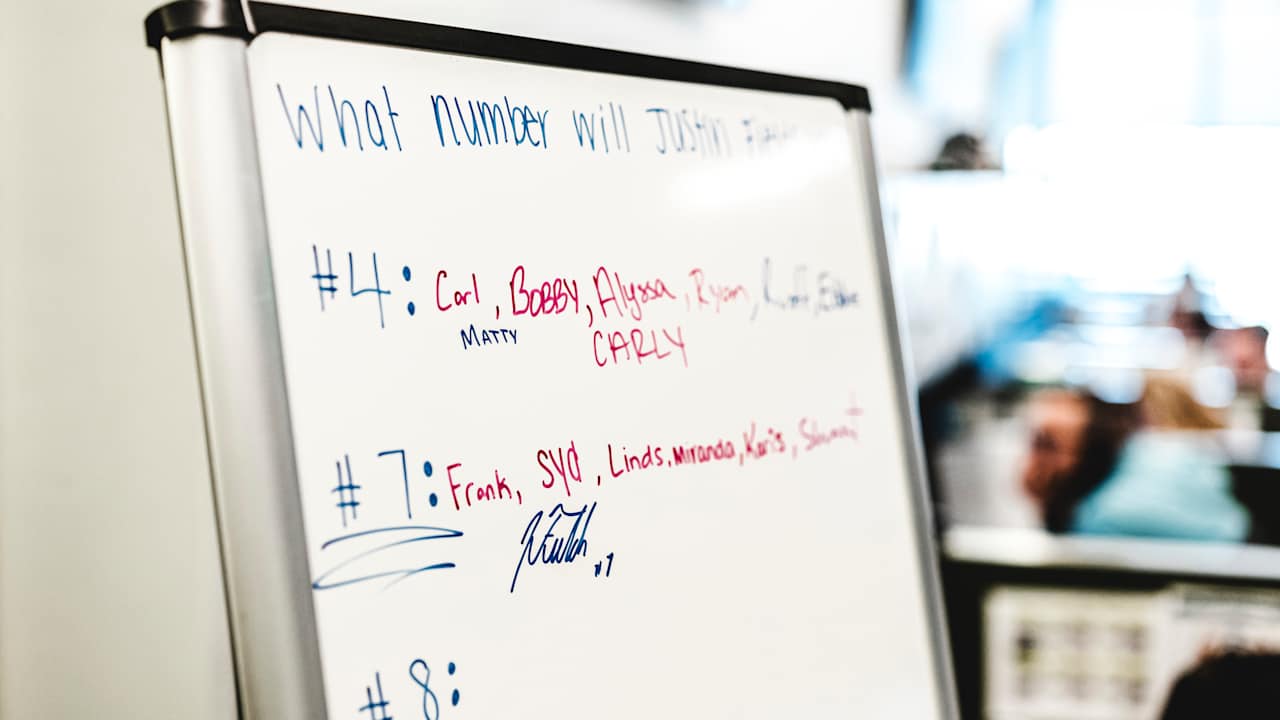 What number will Justin
#4: Carl, BOBBY, Alyssa, Ryan,
MATTY CARLY
#7: Frank, SYd, Linds, Miranda, Karis,
#8: